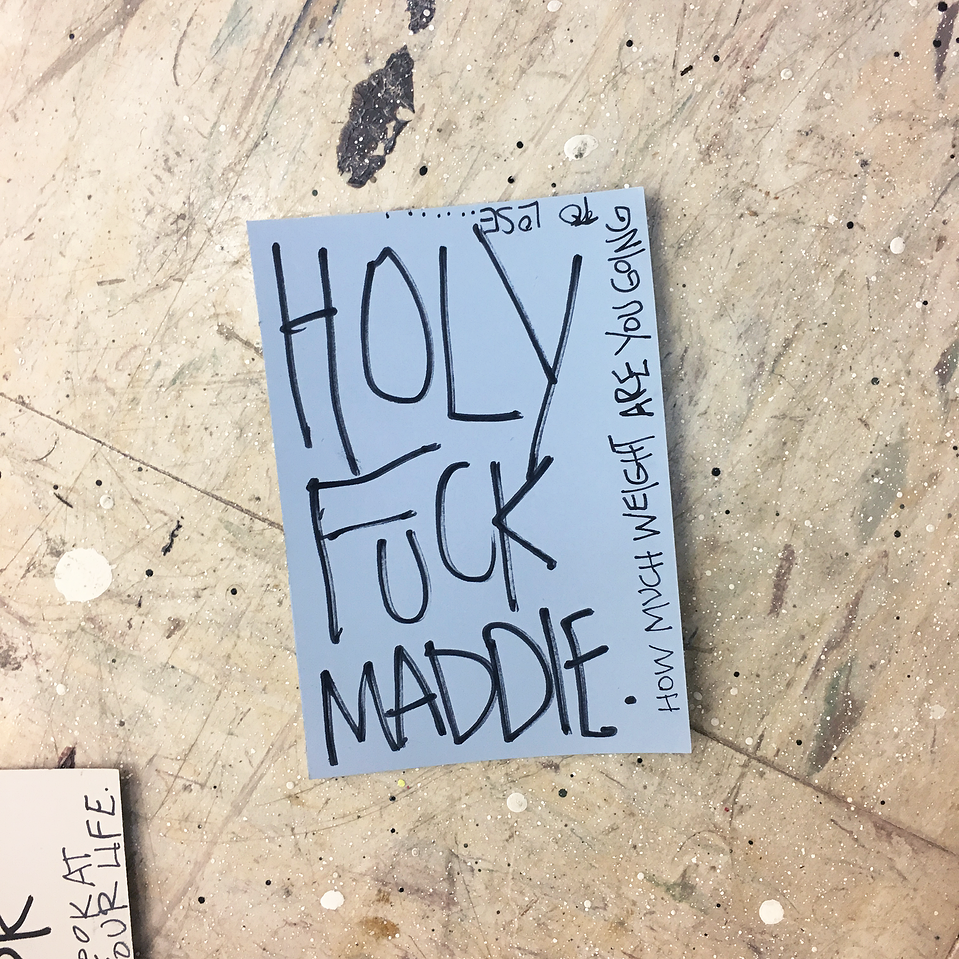 HOLY
FUCK
MADDIE.
HOW MUCH WEIGHT ARE YOU GOING
TO LOSE.......
OK
LOOK AT
YOUR LIFE.